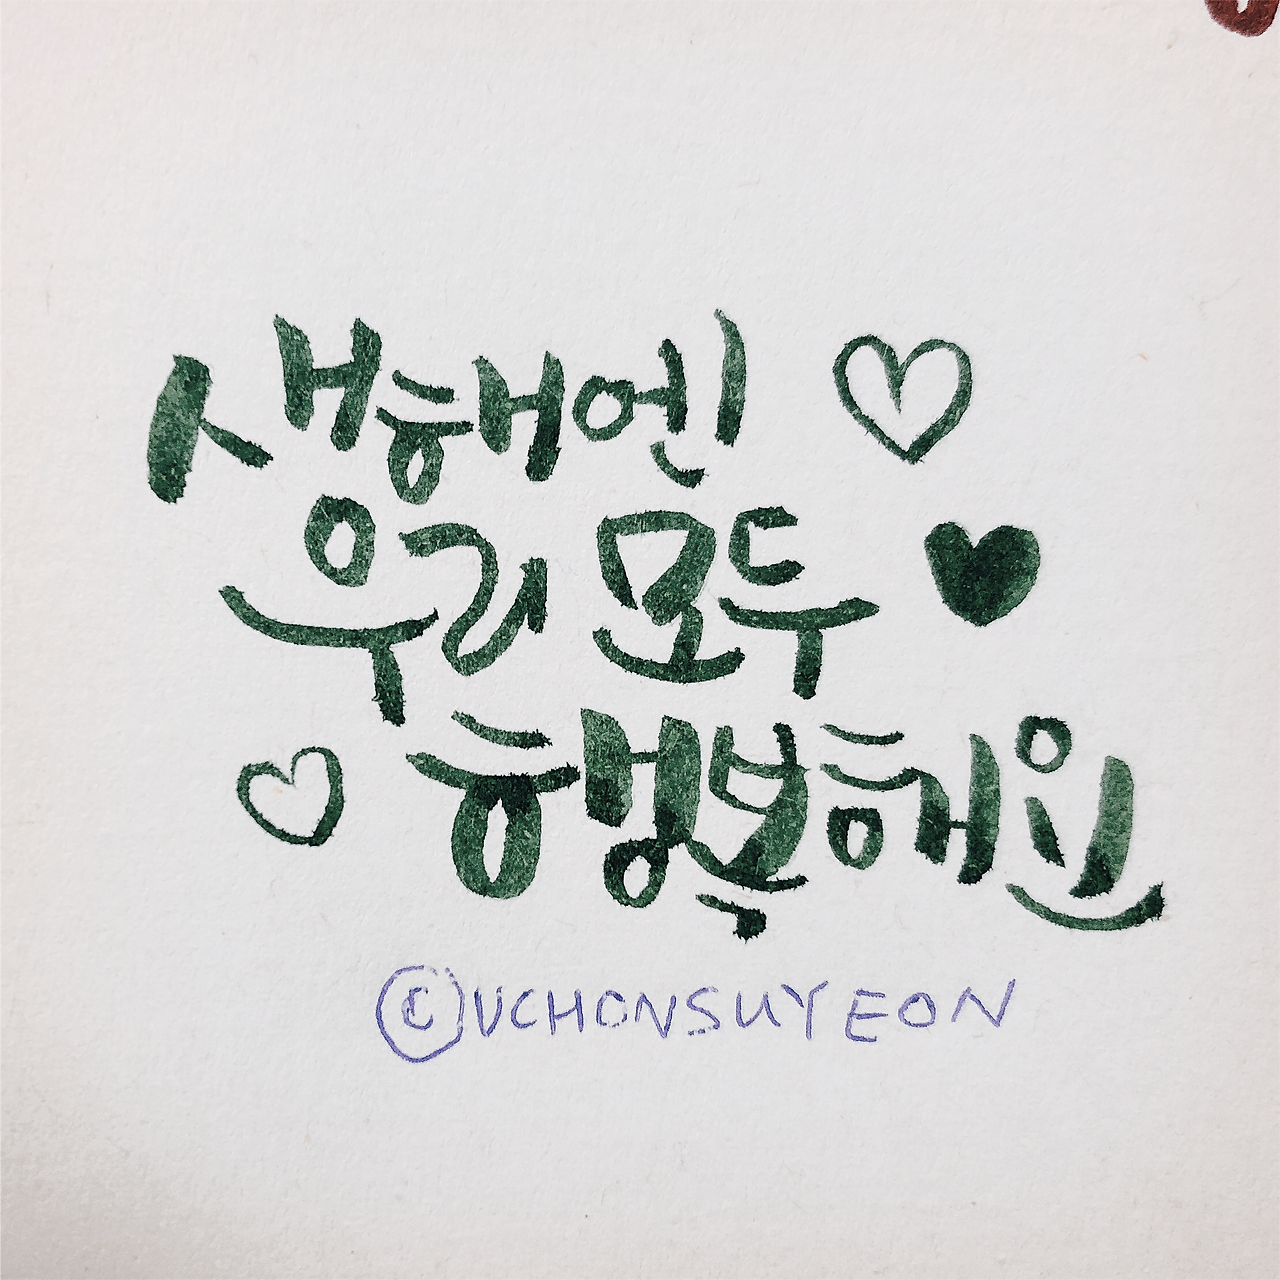 새해엔
우리 모두
행복해요
©UCHONSUYEON